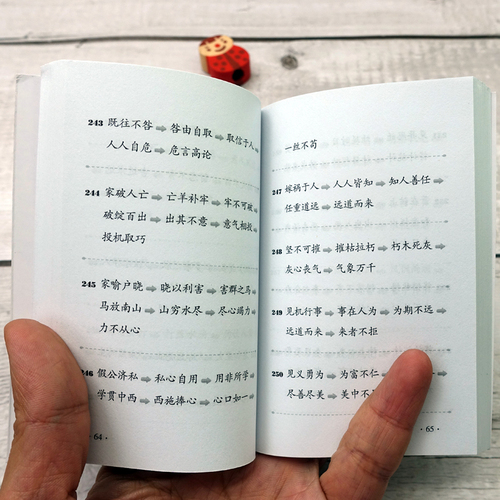 243 既往不咎➡咎由自取➡取信于人➡
人人自危➡危言高论
244 家破人亡➡亡羊补牢➡牢不可破➡
破绽百出➡出其不意➡意气相投➡
投机取巧
245 家喻户晓➡晓以利害➡害群之马➡
马放南山➡山穷水尽➡尽心竭力➡
力不从心
246 假公济私➡私心自用➡用非所学➡
学贯中西➡西施捧心➡心口如一➡
·64·
一丝不苟
247 嫁祸于人➡人人皆知➡知人善任➡
任重道远➡远道而来
248 坚不可摧➡摧枯拉朽➡朽木死灰➡
灰心丧气➡气象万千
249 见机行事➡事在人为➡为期不远➡
远道而来➡来者不拒
250 见义勇为➡为富不仁➡
尽善尽美➡美中不
·65·